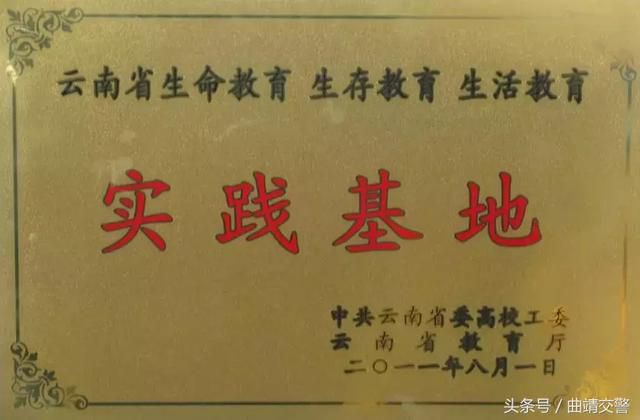 云南省生命教育 生存教育 生活教育
实践基地
中共云南省委高校工委
云南省教育厅
二〇一一年八月一日
头条号 / 曲靖交警